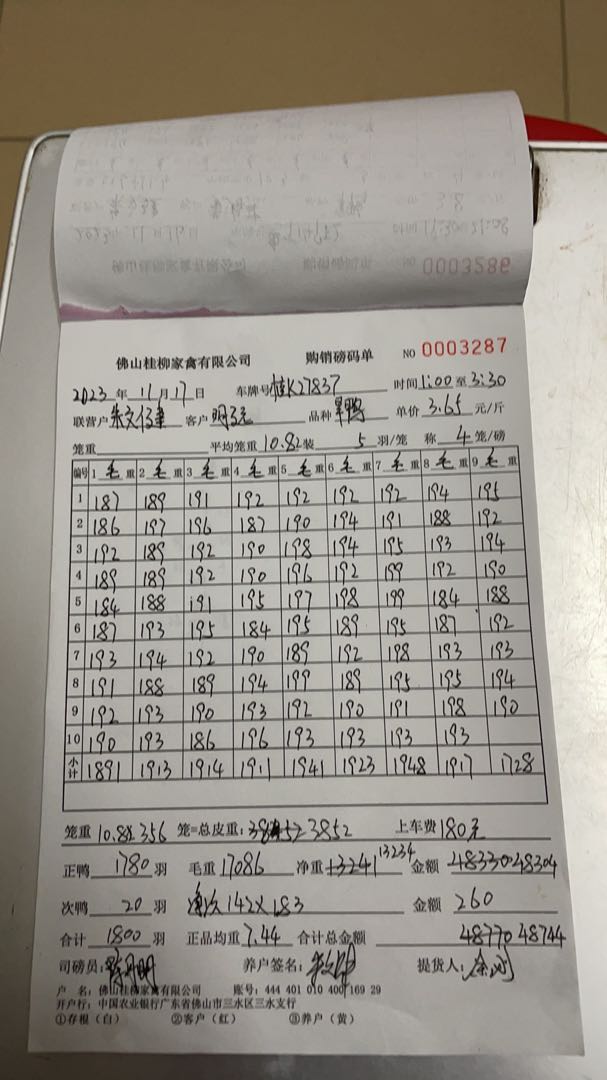 0003286
佛山桂柳家禽有限公司 购销磅码单 NO 0003287
2023年11月17日 车牌号桂K27837 时间1:00至3:30
联营户 客户 品种 单价3.65元/斤
笼重 平均笼重10.82装5羽/笼 称4笼/磅
编号 1毛重 2毛重 3毛重 4毛重 5毛重 6毛重 7毛重 8毛重 9毛重
1 187 189 191 192 192 192 192 194 195
2 186 197 196 187 190 194 191 188 192
3 192 189 192 190 198 194 195 193 194
4 189 189 192 190 196 192 199 192 190
5 184 188 191 195 197 198 199 184 188
6 187 193 195 184 195 189 195 187 192
7 193 194 192 190 189 192 198 193 193
8 191 188 189 194 199 189 195 195 194
9 192 193 190 193 192 190 191 198 190
10 190 193 186 196 193 193 193 193
小计 1891 1913 1914 1911 1941 1923 1948 1917 1728
笼重 356 笼=总皮重: 3852 上车费180元
正鸭1780羽 毛重17086 净重13234 金额48304
次鸭20羽 142 金额260
合计1800羽 正品均重7.44 合计总金额48770 48744
司磅员: 养户签名: 提货人:
户 名:佛山桂柳家禽有限公司 账号:444 401 010 400 169 29
开户行:中国农业银行广东省佛山市三水区三水支行
①存根(白) ②客户(红) ③养户(黄)